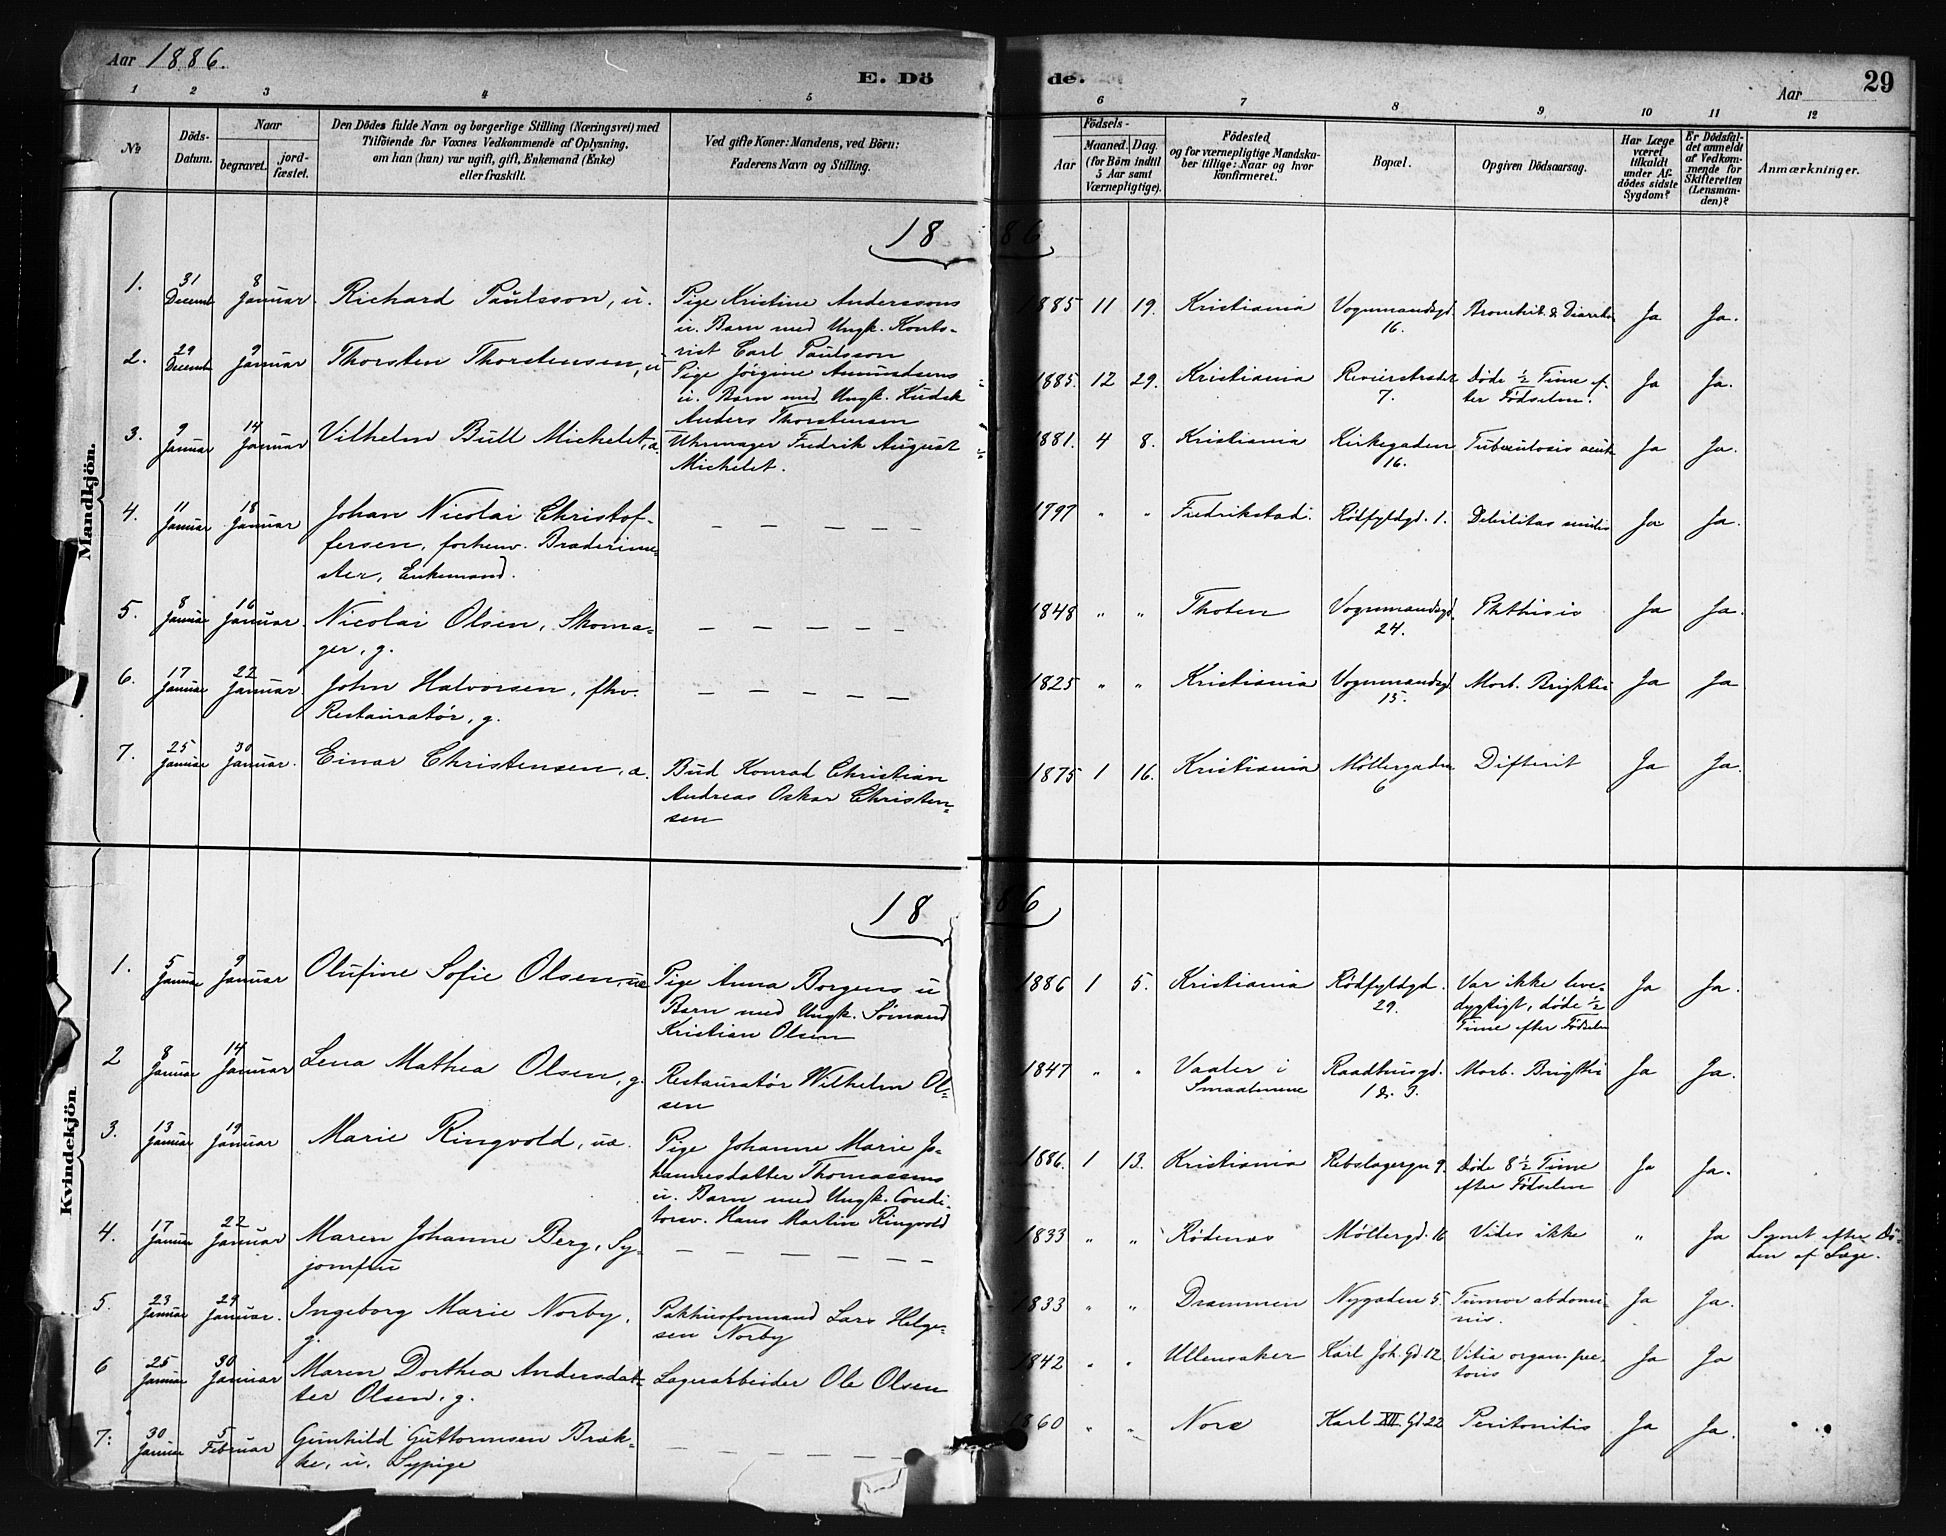 Aar 1886.
E. Döde.
Aar
29
1 2 3 4 5 6 7 8 9 10 11 12
№
Döds-Datum.
Naar
begravet.
jord-fæstet.
Den Dödes fulde Navn og borgerlige Stilling (Næringsvei) med
Tilföiende for Voxnes Vedkommende af Oplysning,
om han (hun) var ugift, gift, Enkemand (Enke)
eller fraskilt.
Ved gifte Koner: Mandens, ved Börn:
Faderens Navn og Stilling.
Födsels-
Aar
Maaned. Dag.
(for Börn indtil
5 Aar samt
Værnepligtige).
Födested
og for værnepligtige Mandska-
ber tillige: Naar og hvor
konfirmeret.
Bopæl.
Opgiven Dödsaarsag.
Har Læge
været
tilkaldt
under Af-
dödes sidste
Sygdom?
Er Dödsfal-
det anmeldt
af Vedkom-
mende for
Skifteretten
(Lensman-
den)?
Anmærkninger.
Mandkjön.
1886
1. 31 Decemb 8 Januar. Richard Paulsson, u. Pige Kristine Anderssons 1885 11 19. Kristiania Vognmandsgd. 16. Bronchit. & Diarrhe Ja Ja.
u. Barn med Ungk. Konto-
rist Carl Paulsson
2. 29 Decemb 9 Januar Thorsten Thorstensen, u Pige Jörgine Amundsens 1885. 12 29. Kristiania Revierstrædet 7. Döde ½ Time ef-
ter Födselen. Ja Ja.
u. Barn med Ungk. Kudsk
Anders Thorstensen
3. 9 Januar 14 Januar Vilhelm Bull Michelet, a. Uhrmager Fredrik August 1881. 4 8. Kristiania Kirkegaden 16. Tuberculosis acut. Ja Ja.
Michelet.
4. 11 Januar 18 Januar Johan Nicolai Christof- — — — — — 1797 " " Fredrikstad. Rödfyldgd. 1. Debilitas senilis Ja Ja.
fersen, forhenv. Broderime-
ster, Enkemand.
5. 8 Januar 16 Januar. Nicolai Olsen, Skoma- — — — — — 1848 " " Thoten Vognmandsgd. 24. Phthisis Ja Ja.
ger, g.
6. 17 Januar 22 Januar. John Halvorsen, fhv. — — — — — 1825 " " Kristiania Vognmandsgd. 15. Morb. Brightii Ja Ja
Restauratör, g.
7. 25 Januar 30 Januar. Einar Christensen, a. Bud Konrad Christian 1875 1 16. Kristiania Möllergaden 6 Difterit Ja Ja.
Andreas Oskar Christen-
sen
Kvindekjön
1886
1. 5 Januar 9 Januar Olufine Sofie Olsen, uæ Pige Anna Borgens u 1886 1 5. Kristiania Rödfyldgd. 29. Var ikke leve-
dygtigt, döde ½
Time efter Födselen Ja Ja.
Barn med Ungk. Sömand
Kristian Olsen
2 8 Januar 14 Januar Lena Mathea Olsen, g. Restauratör Wilhelm Ol- 1847 " " Vaaler i
Smaalenene Raadhusgd. 1 & 3. Morb. Brigthii Ja Ja.
sen
3. 13 Januar 19 Januar Marie Ringvold, uæ. Pige Johanne Marie Jo- 1886. 1 13. Kristiania Rebslagergn 9. Döde 8 ½ Time
efter Födselen Ja Ja.
hannesdatter Thomassens
u. Barn med Ungk. Condi-
torsv. Hans Martin Ringvold
4. 17 Januar 22 Januar Maren Johanne Berg, Sy- — — — — — 1833 " " Rödenæs Möllergd. 16 Vides ikke " Ja Synet efter Dö-
den af Læge.
jomfru
5. 23 Januar 29 Januar. Ingeborg Marie Norby, Pakhusformand Lars Helge- 1833 " " Drammen Nygaden 5. Tumor abdomi-
nis. Ja Ja.
g. sen Norby
6 25 Januar 30 Januar Maren Dorthea Andersdat- Lagerarbeider Ole Olsen 1842 " " Ullensaker Karl Joh. Gd. 12. Vitia organ. pec-
toris Ja Ja
ter Olsen, g.
7. 30 Januar 5 Februar Gunhild Guttormsen Brek- — — — — — 1860 " " Nore Karl XII Gd 22 Peritonitis Ja Ja.
ke, u. Sypige